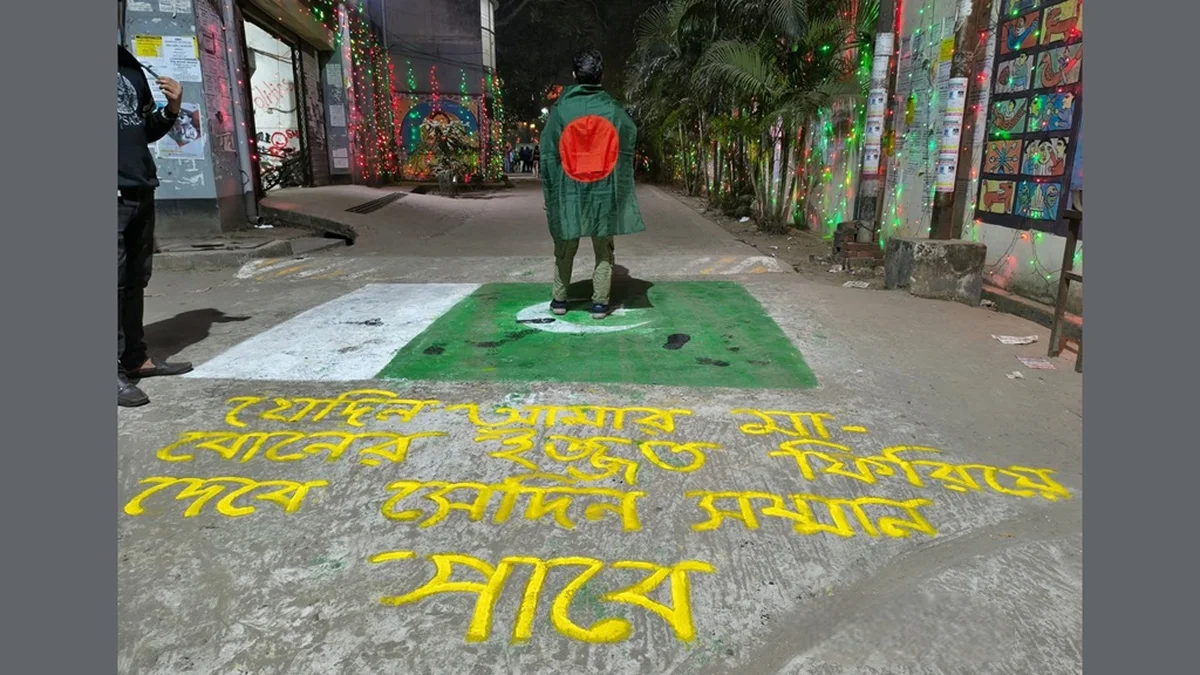 যেদিন আমার মা-
বোনের ইজ্জত ফিরিয়ে
দেবে সেদিন সম্মান
পাবে